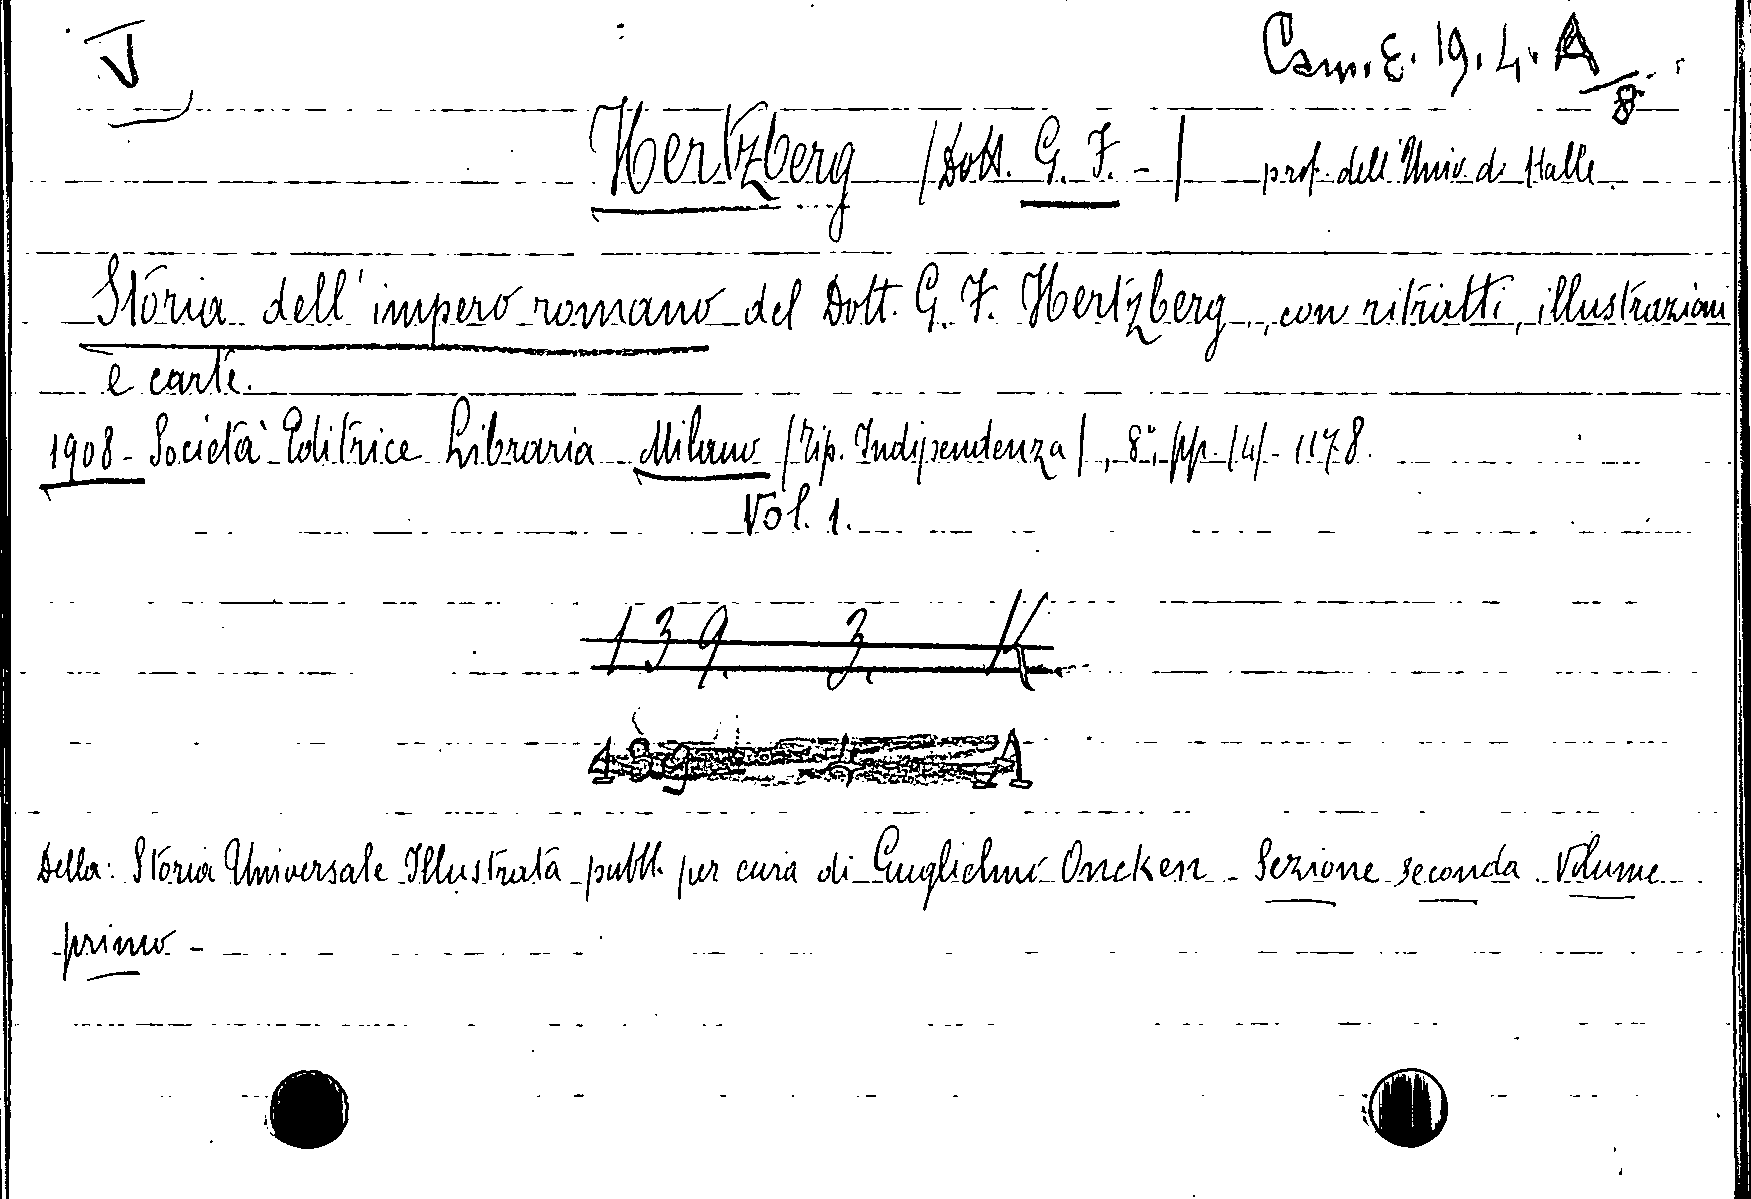 V Cam. E. 19. 4. A/8
Hertzberg /Dott. G. F. - / prof. dell'Univ. di Halle.
Storia dell'impero romano del Dott. G. F. Hertzberg, con ritratti, illustrazioni
e carte.
1908 - Società Editrice Libraria Milano /Tip. Indipendenza/, 8°, pp. /4/ - 1178.
Vol. 1.
139. 3. K
Della: Storia Universale Illustrata pubbl. per cura di Guglielmo Oncken - Sezione seconda Volume
primo -